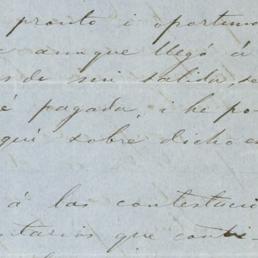 pronto i oportuna
aunque llegó á
sde su salida, se
é pagada, i he po-
quí sobre dicho
á las contestaci
ntarios que conti-